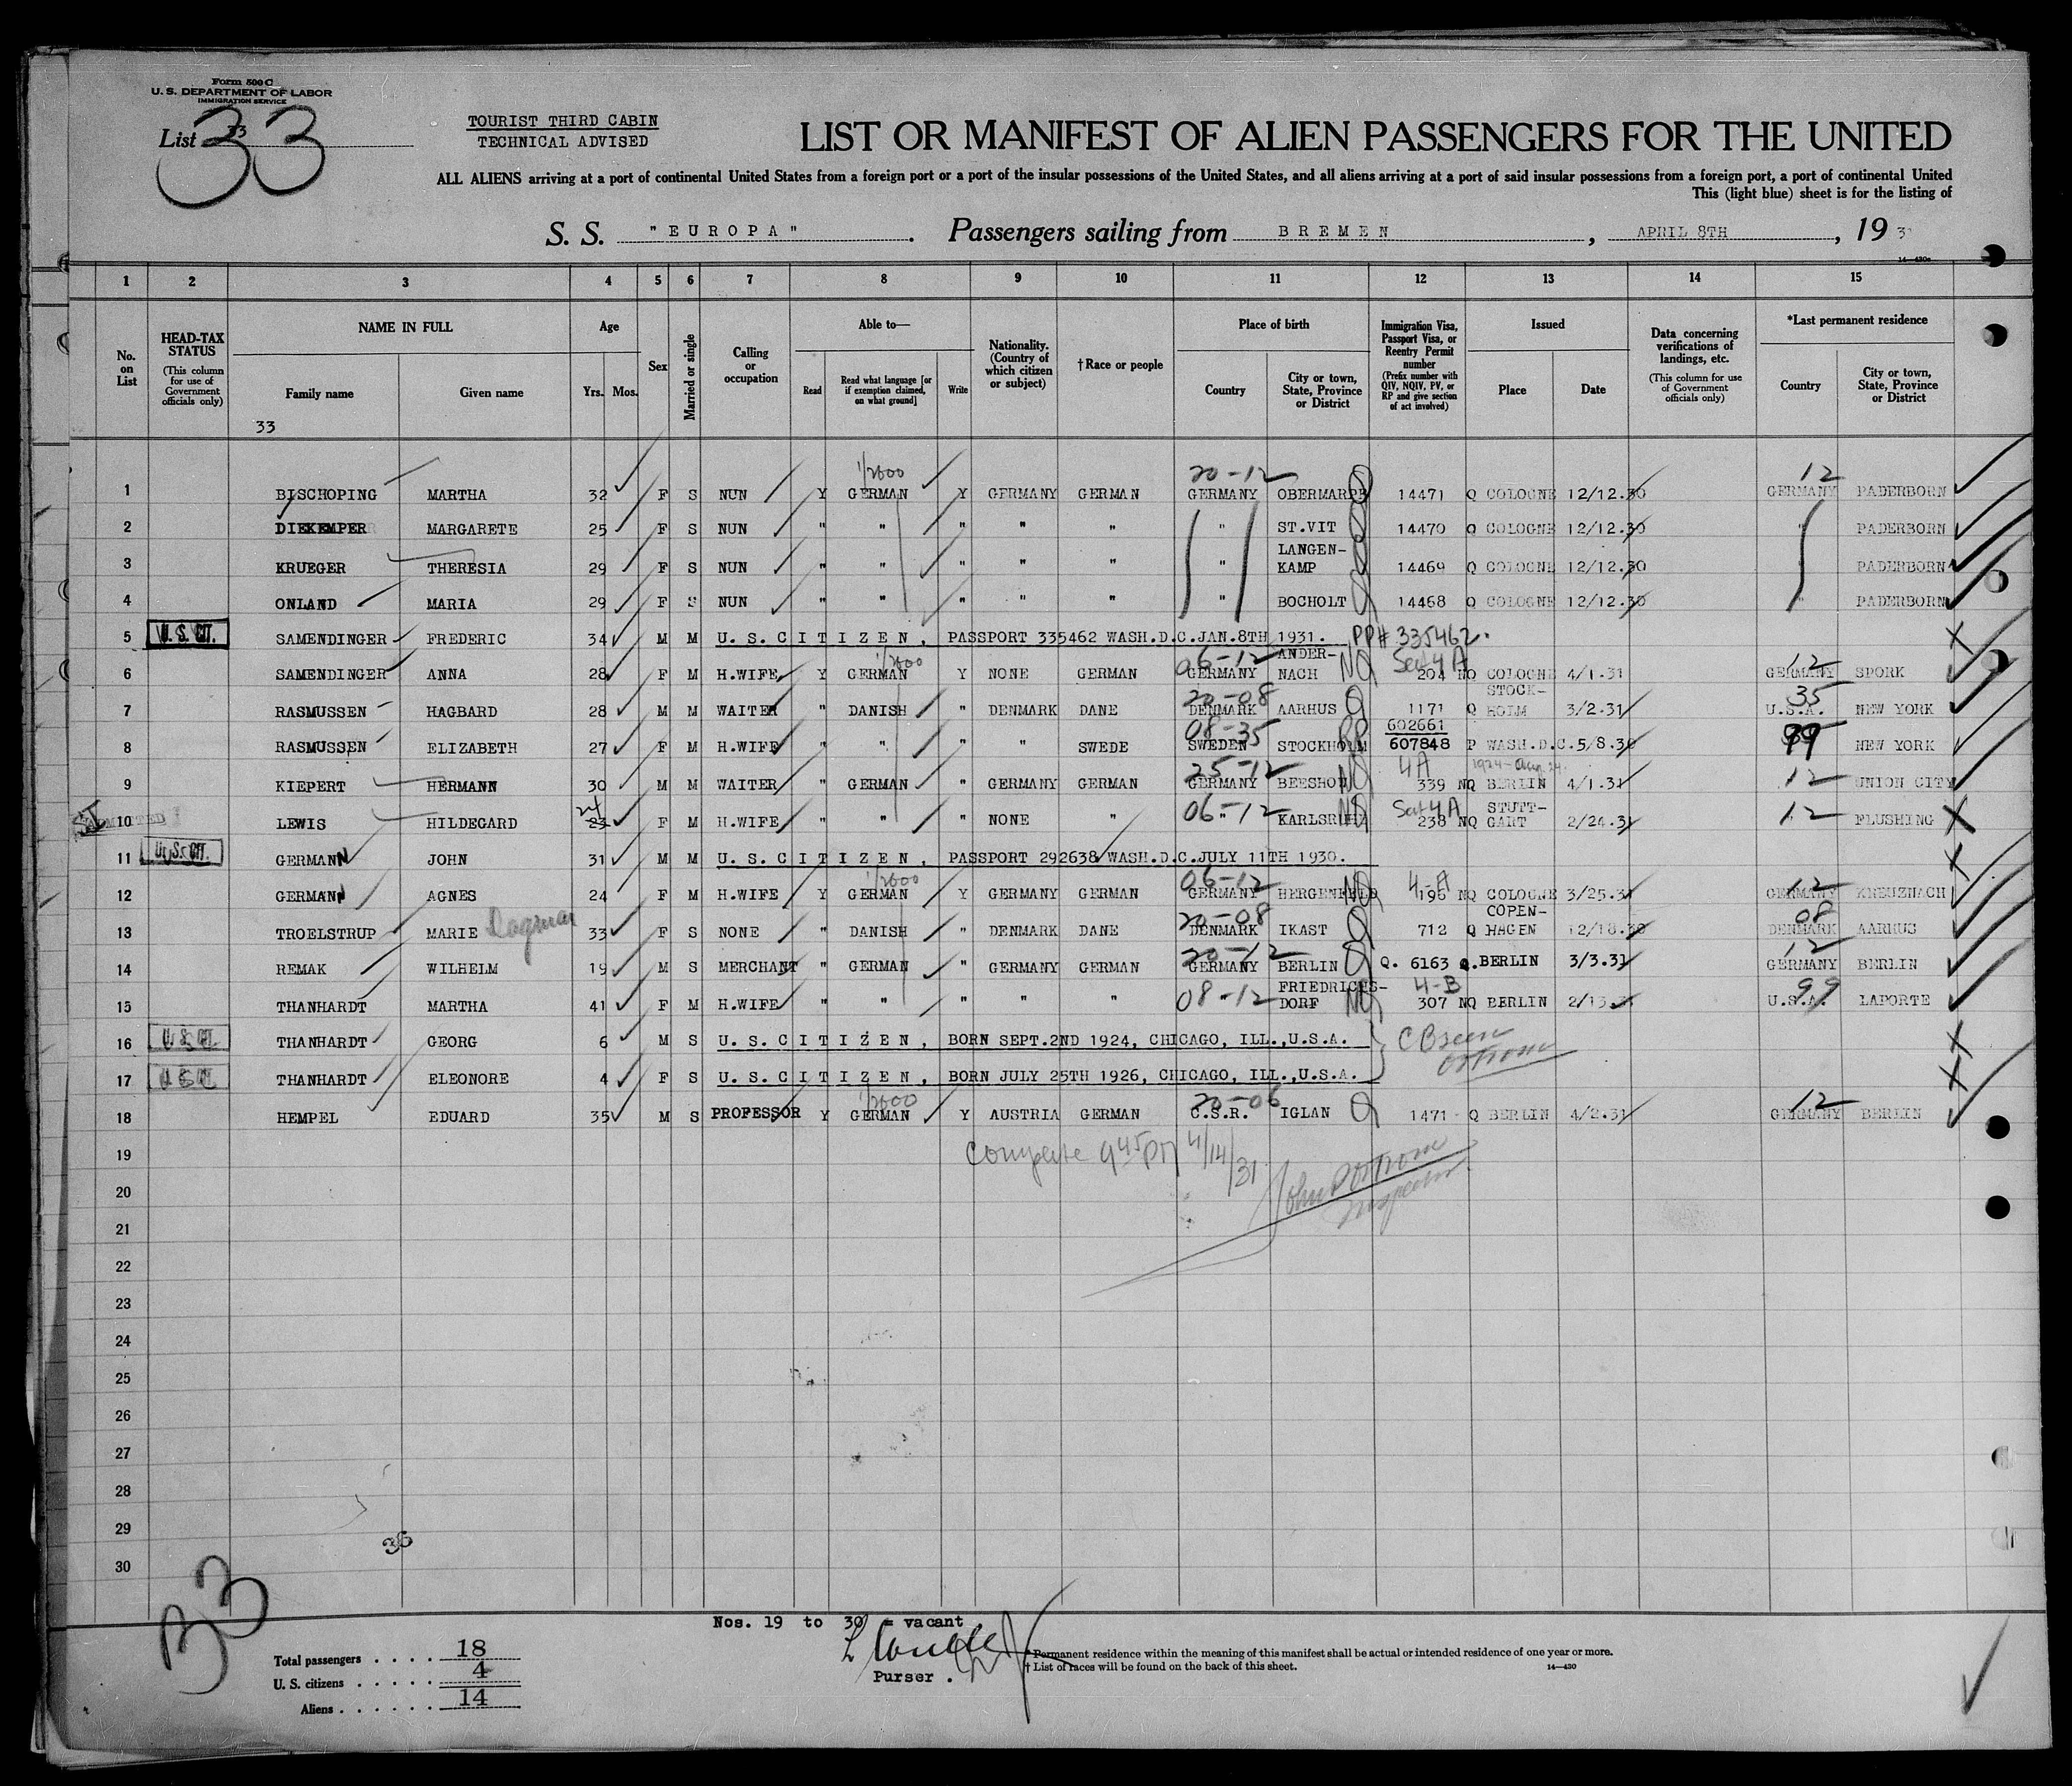 Form 500 C
U. S. DEPARTMENT OF LABOR
IMMIGRATION SERVICE
List 33
33
TOURIST THIRD CABIN
TECHNICAL ADVISED
LIST OR MANIFEST OF ALIEN PASSENGERS FOR THE UNITED
ALL ALIENS arriving at a port of continental United States from a foreign port or a port of the insular possessions of the United States, and all aliens arriving at a port of said insular possessions from a foreign port, a port of continental United
This (light blue) sheet is for the listing of
S. S. "EUROPA" . Passengers sailing from BREMEN , APRIL 8TH , 19 3
14—430a
1 2 3 4 5 6 7 8 9 10 11 12 13 14 15
No. on List
HEAD-TAX STATUS (This column for use of Government officials only)
NAME IN FULL Family name Given name
Age Yrs. Mos.
Sex
Married or single
Calling or occupation
Able to— Read Read what language [or if exemption claimed, on what ground] Write
Nationality. (Country of which citizen or subject)
†Race or people
Place of birth Country City or town, State, Province or District
Immigration Visa, Passport Visa, or Reentry Permit number (Prefix number with QIV, NQIV, PV, or RP and give section of act involved)
Issued Place Date
Data concerning verifications of landings, etc. (This column for use of Government officials only)
*Last permanent residence Country City or town, State, Province or District
33
1/2600 20-12 12
1 BISCHOPING MARTHA 32 F S NUN Y GERMAN Y GERMANY GERMAN GERMANY OBERMARPE 14471 Q COLOGNE 12/12.30 GERMANY PADERBORN
2 DIEKEMPER MARGARETE 25 F S NUN " " " " " " ST.VIT 14470 Q COLOGNE 12/12.30 " PADERBORN
LANGEN-
3 KRUEGER THERESIA 29 F S NUN " " " " " " KAMP 14469 Q COLOGNE 12/12.30 PADERBORN
4 ONLAND MARIA 29 F S NUN " " " " " " BOCHOLT 14468 Q COLOGNE 12/12.30 " PADERBORN
U. S. CIT. 5 SAMENDINGER FREDERIC 34 M M U. S. C I T I Z E N , PASSPORT 335462 WASH.D.C.JAN.8TH 1931. PP# 335462.
1/2600 06-12 ANDER- NQ Sect 4 A 12
6 SAMENDINGER ANNA 28 F M H.WIFE Y GERMAN Y NONE GERMAN GERMANY NACH 204 NQ COLOGNE 4/1.31 GERMANY SPORK
20-08 STOCK- 35
7 RASMUSSEN HAGBARD 28 M M WAITER " DANISH " DENMARK DANE DENMARK AARHUS Q 1171 Q HOLM 3/2.31 U.S.A. NEW YORK
08-35 602661
8 RASMUSSEN ELIZABETH 27 F M H.WIFE " " " " SWEDE SWEDEN STOCKHOLM RP 607848 P WASH.D.C.5/8.30 99 NEW YORK
25-12 4A 1924-Aug. 24.
9 KIEPERT HERMANN 30 M M WAITER " GERMAN " GERMANY GERMAN GERMANY BEESHOW NQ 339 NQ BERLIN 4/1.31 12 UNION CITY
SI ADMITTED 24 06-12 NQ Sect 4 A STUTT- 12
10 LEWIS HILDEGARD 23 F M H.WIFE " " " NONE " " KARLSRUHE 238 NQ GART 2/24.31 FLUSHING
U. S. CIT. 11 GERMANN JOHN 31 M M U. S. C I T I Z E N , PASSPORT 292638 WASH.D.C.JULY 11TH 1930.
1/2600 06-12 4-A 12
12 GERMANN AGNES 24 F M H.WIFE Y GERMAN Y GERMANY GERMAN GERMANY HERGENFELD NQ 196 NQ COLOGNE 3/25.31 GERMANY KREUZNACH
Dagmar 20-08 COPEN- 08
13 TROELSTRUP MARIE 33 F S NONE " DANISH " DENMARK DANE DENMARK IKAST Q 712 Q HAGEN 12/18.30 DENMARK AARHUS
20-12 12
14 REMAK WILHELM 19 M S MERCHANT " GERMAN " GERMANY GERMAN GERMANY BERLIN Q Q. 6163 Q.BERLIN 3/3.31 GERMANY BERLIN
08-12 FRIEDRICHS- 4-B 99
15 THANHARDT MARTHA 41 F M H.WIFE " " " " " " DORF NQ 307 NQ BERLIN 2/13.31 U.S.A. LAPORTE
U. S. CIT. 16 THANHARDT GEORG 6 M S U. S. C I T I Z E N , BORN SEPT.2ND 1924, CHICAGO, ILL.,U.S.A.
U. S. CIT. 17 THANHARDT ELEONORE 4 F S U. S. C I T I Z E N , BORN JULY 25TH 1926, CHICAGO, ILL.,U.S.A.
C B seen
Ostrom
1/2600 20-06 12
18 HEMPEL EDUARD 35 M S PROFESSOR Y GERMAN Y AUSTRIA GERMAN C.S.R. IGLAN Q 1471 Q BERLIN 4/2.31 GERMANY BERLIN
Complete 9 45 PM 4/14/31
John Ostrom
Inspector
19
20
21
22
23
24
25
26
27
28
29
30
36
33
Nos. 19 to 30 = vacant
Purser .
Total passengers . . . . 18
U. S. citizens . . . . . 4
Aliens . . . . . . 14
* Permanent residence within the meaning of this manifest shall be actual or intended residence of one year or more.
† List of races will be found on the back of this sheet.
14—430